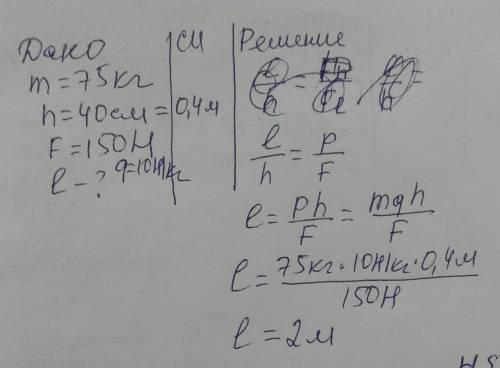 Дано
m=75кг
h=40см=0,4м
F=150Н
g=10Н/кг
l-?
СИ
Решение
l/h = P/F
l = Ph/F = mgh/F
l = 75кг·10Н/кг·0,4м/150Н
l = 2м